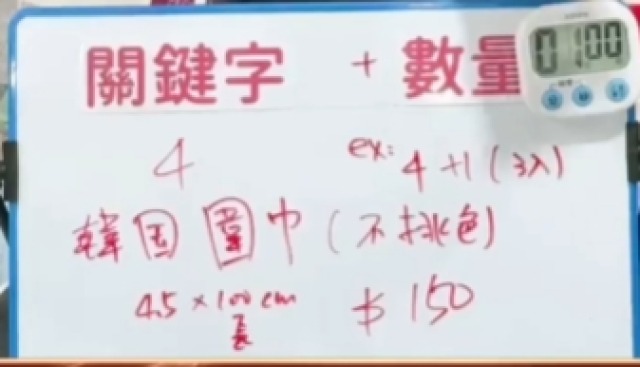 關鍵字 + 數量
01:00
4 ex: 4+1 (3入)
韓国圍巾(不挑色)
45×100cm $150
長